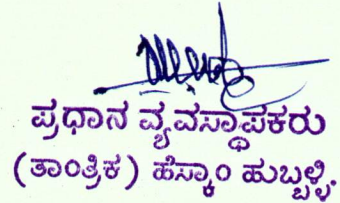 ಪ್ರಧಾನ ವ್ಯವಸ್ಥಾಪಕರು
(ತಾಂತ್ರಿಕ) ಹೆಸ್ಕಾಂ ಹುಬ್ಬಳ್ಳಿ.